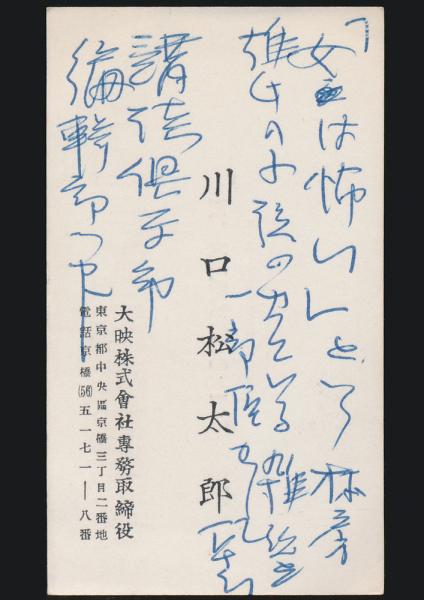 「女は怖い」という林房
雄氏の小説の 雑誌
一部
川口松太郎
講談倶楽部
編輯部
大映株式會社專務取締役
東京都中央區京橋三丁目二番地
電話京橋(56)五一七一―八番